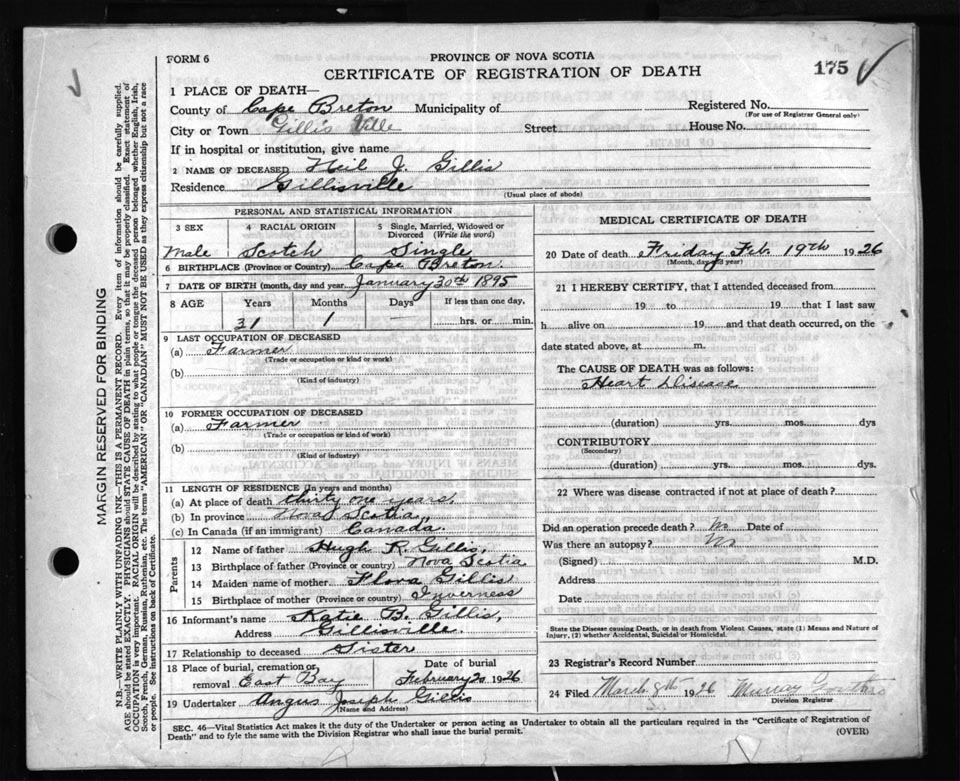 FORM 6
PROVINCE OF NOVA SCOTIA
CERTIFICATE OF REGISTRATION OF DEATH
175
1 PLACE OF DEATH—
County of Cape Breton Municipality of Registered No.
(For use of Registrar General only)
City or Town Gillis Ville Street House No.
If in hospital or institution, give name
2 NAME OF DECEASED Neil J. Gillis
Residence Gillisville
(Usual place of abode)
PERSONAL AND STATISTICAL INFORMATION
3 SEX 4 RACIAL ORIGIN 5 Single, Married, Widowed or Divorced (Write the word)
Male Scotch Single
6 BIRTHPLACE (Province or Country) Cape Breton.
7 DATE OF BIRTH (month, day and year) January 30th 1895
8 AGE Years Months Days If less than one day,
31 1 — hrs. or min.
9 LAST OCCUPATION OF DECEASED
(a) Farmer
(Trade or occupation or kind or work)
(b)
(Kind of industry)
10 FORMER OCCUPATION OF DECEASED
(a) Farmer
(Trade or occupation or kind or work)
(b)
(Kind of industry)
11 LENGTH OF RESIDENCE (In years and months)
(a) At place of death thirty one years.
(b) In province Nova Scotia,
(c) In Canada (if an immigrant) Canada,
Parents
12 Name of father Hugh R. Gillis,
13 Birthplace of father (Province or Country) Nova Scotia
14 Maiden name of mother Flora Gillis
15 Birthplace of mother (Province or country) Inverness
16 Informant's name Katie B. Gillis,
Address Gillisville.
17 Relationship to deceased Sister
18 Place of burial, cremation, or removal East Bay
Date of burial February 20 1926
19 Undertaker Angus Joseph Gillis
(Name and Address)
MEDICAL CERTIFICATE OF DEATH
20 Date of death Friday Feb. 19th 1926
(Month, day and year)
21 I HEREBY CERTIFY, that I attended deceased from
19 to 19 that I last saw
h alive on 19 and that death occurred, on the
date stated above, at m.
The CAUSE OF DEATH was as follows:
Heart Disease
(duration) yrs. mos. dys
CONTRIBUTORY
(Secondary)
(duration) yrs. mos. dys.
22 Where was disease contracted if not at place of death?
Did an operation precede death? No Date of
Was there an autopsy? No
(Signed) M.D.
Address
Date
State the Disease causing Death, or in death from Violent Causes, state (1) Means and Nature of
Injury, (2) whether Accidental, Suicidal or Homicidal.
23 Registrar's Record Number
24 Filed March 8th 1926 Murray
Division Registrar
SEC. 46—Vital Statistics Act makes it the duty of the Undertaker or person acting as Undertaker to obtain all the particulars required in the "Certificate of Registration of
Death" and to fyle the same with the Division Registrar who shall issue the burial permit.
(OVER)
MARGIN RESERVED FOR BINDING
N.B.—WRITE PLAINLY WITH UNFADING INK—THIS IS A PERMANENT RECORD. Every item of information should be carefully supplied.
AGE should be stated EXACTLY. PHYSICIANS should STATE CAUSE OF DEATH in plain terms, so that it may be properly classified. Exact statement of
OCCUPATION is very important. RACIAL ORIGIN will be described by stating to what people or tongue the deceased person belonged whether English, Irish,
Scotch, French, German, Russian, Ruthenian, etc. The terms "AMERICAN" OR "CANADIAN" MUST NOT BE USED as they express citizenship but not a race
or people. See instructions on back of Certificate.